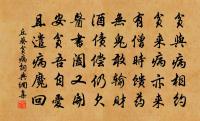 貧與病相約
貧來病亦來
有僧時饋藥
無鬼敢輸財
酒債償仍欠
醫書闔又開
安貧吾自愛
且遣病魔回
丘葵貧病詞典網書